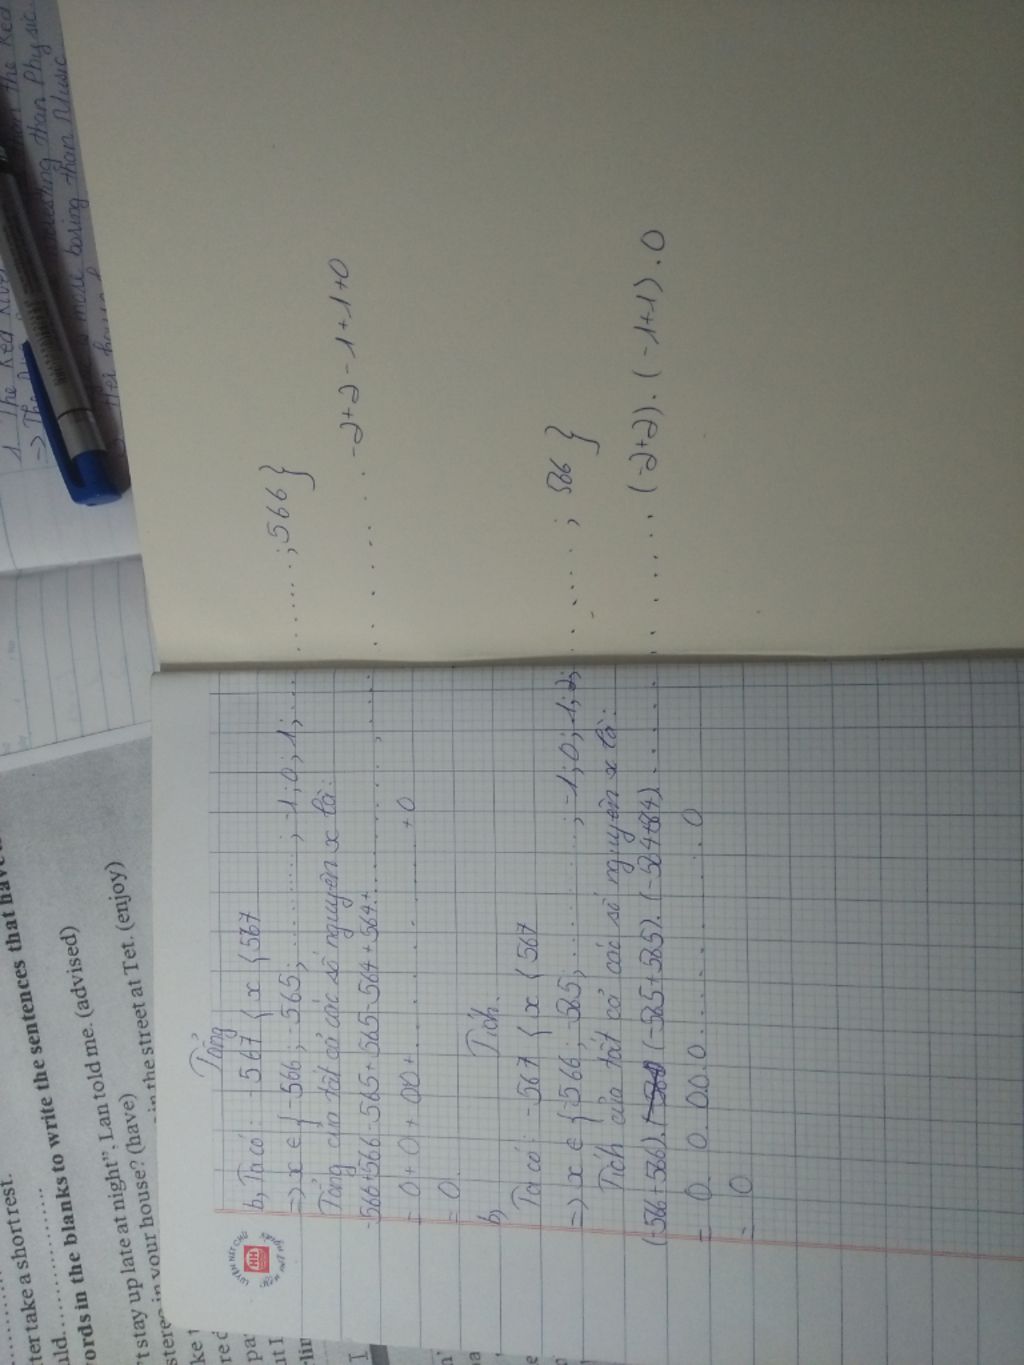 1. The Red River
than the Red
=> The
interesting than Physic.
more boring than Music.
Her house
ter take a short rest.
uld...............
words in the blanks to write the sentences that have
't stay up late at night", Lan told me. (advised)
in your house? (have)
in the street at Tet. (enjoy)
LUYỆN NÉT CHỮ
HH
Tổng
b, Ta có: -567 < x < 567
=> x ∈ {-566; -565; ..........; -1; 0; 1; .......; 566}
Tổng của tất cả các số nguyên x là:
-566+566-565+565-564+564+.......... -2+2-1+1+0
= 0+0+00+.......... +0
= 0
b, Tích.
Ta có: -567 < x < 567
=> x ∈ {-566; -565; ..........; -1; 0; 1; 2; ......; 566}
Tích của tất cả các số nguyên x là:
(-566+566).(-565+565).(-564+564).......... (-2+2).(-1+1).0
= 0. 0. 00.0.......... 0
= 0